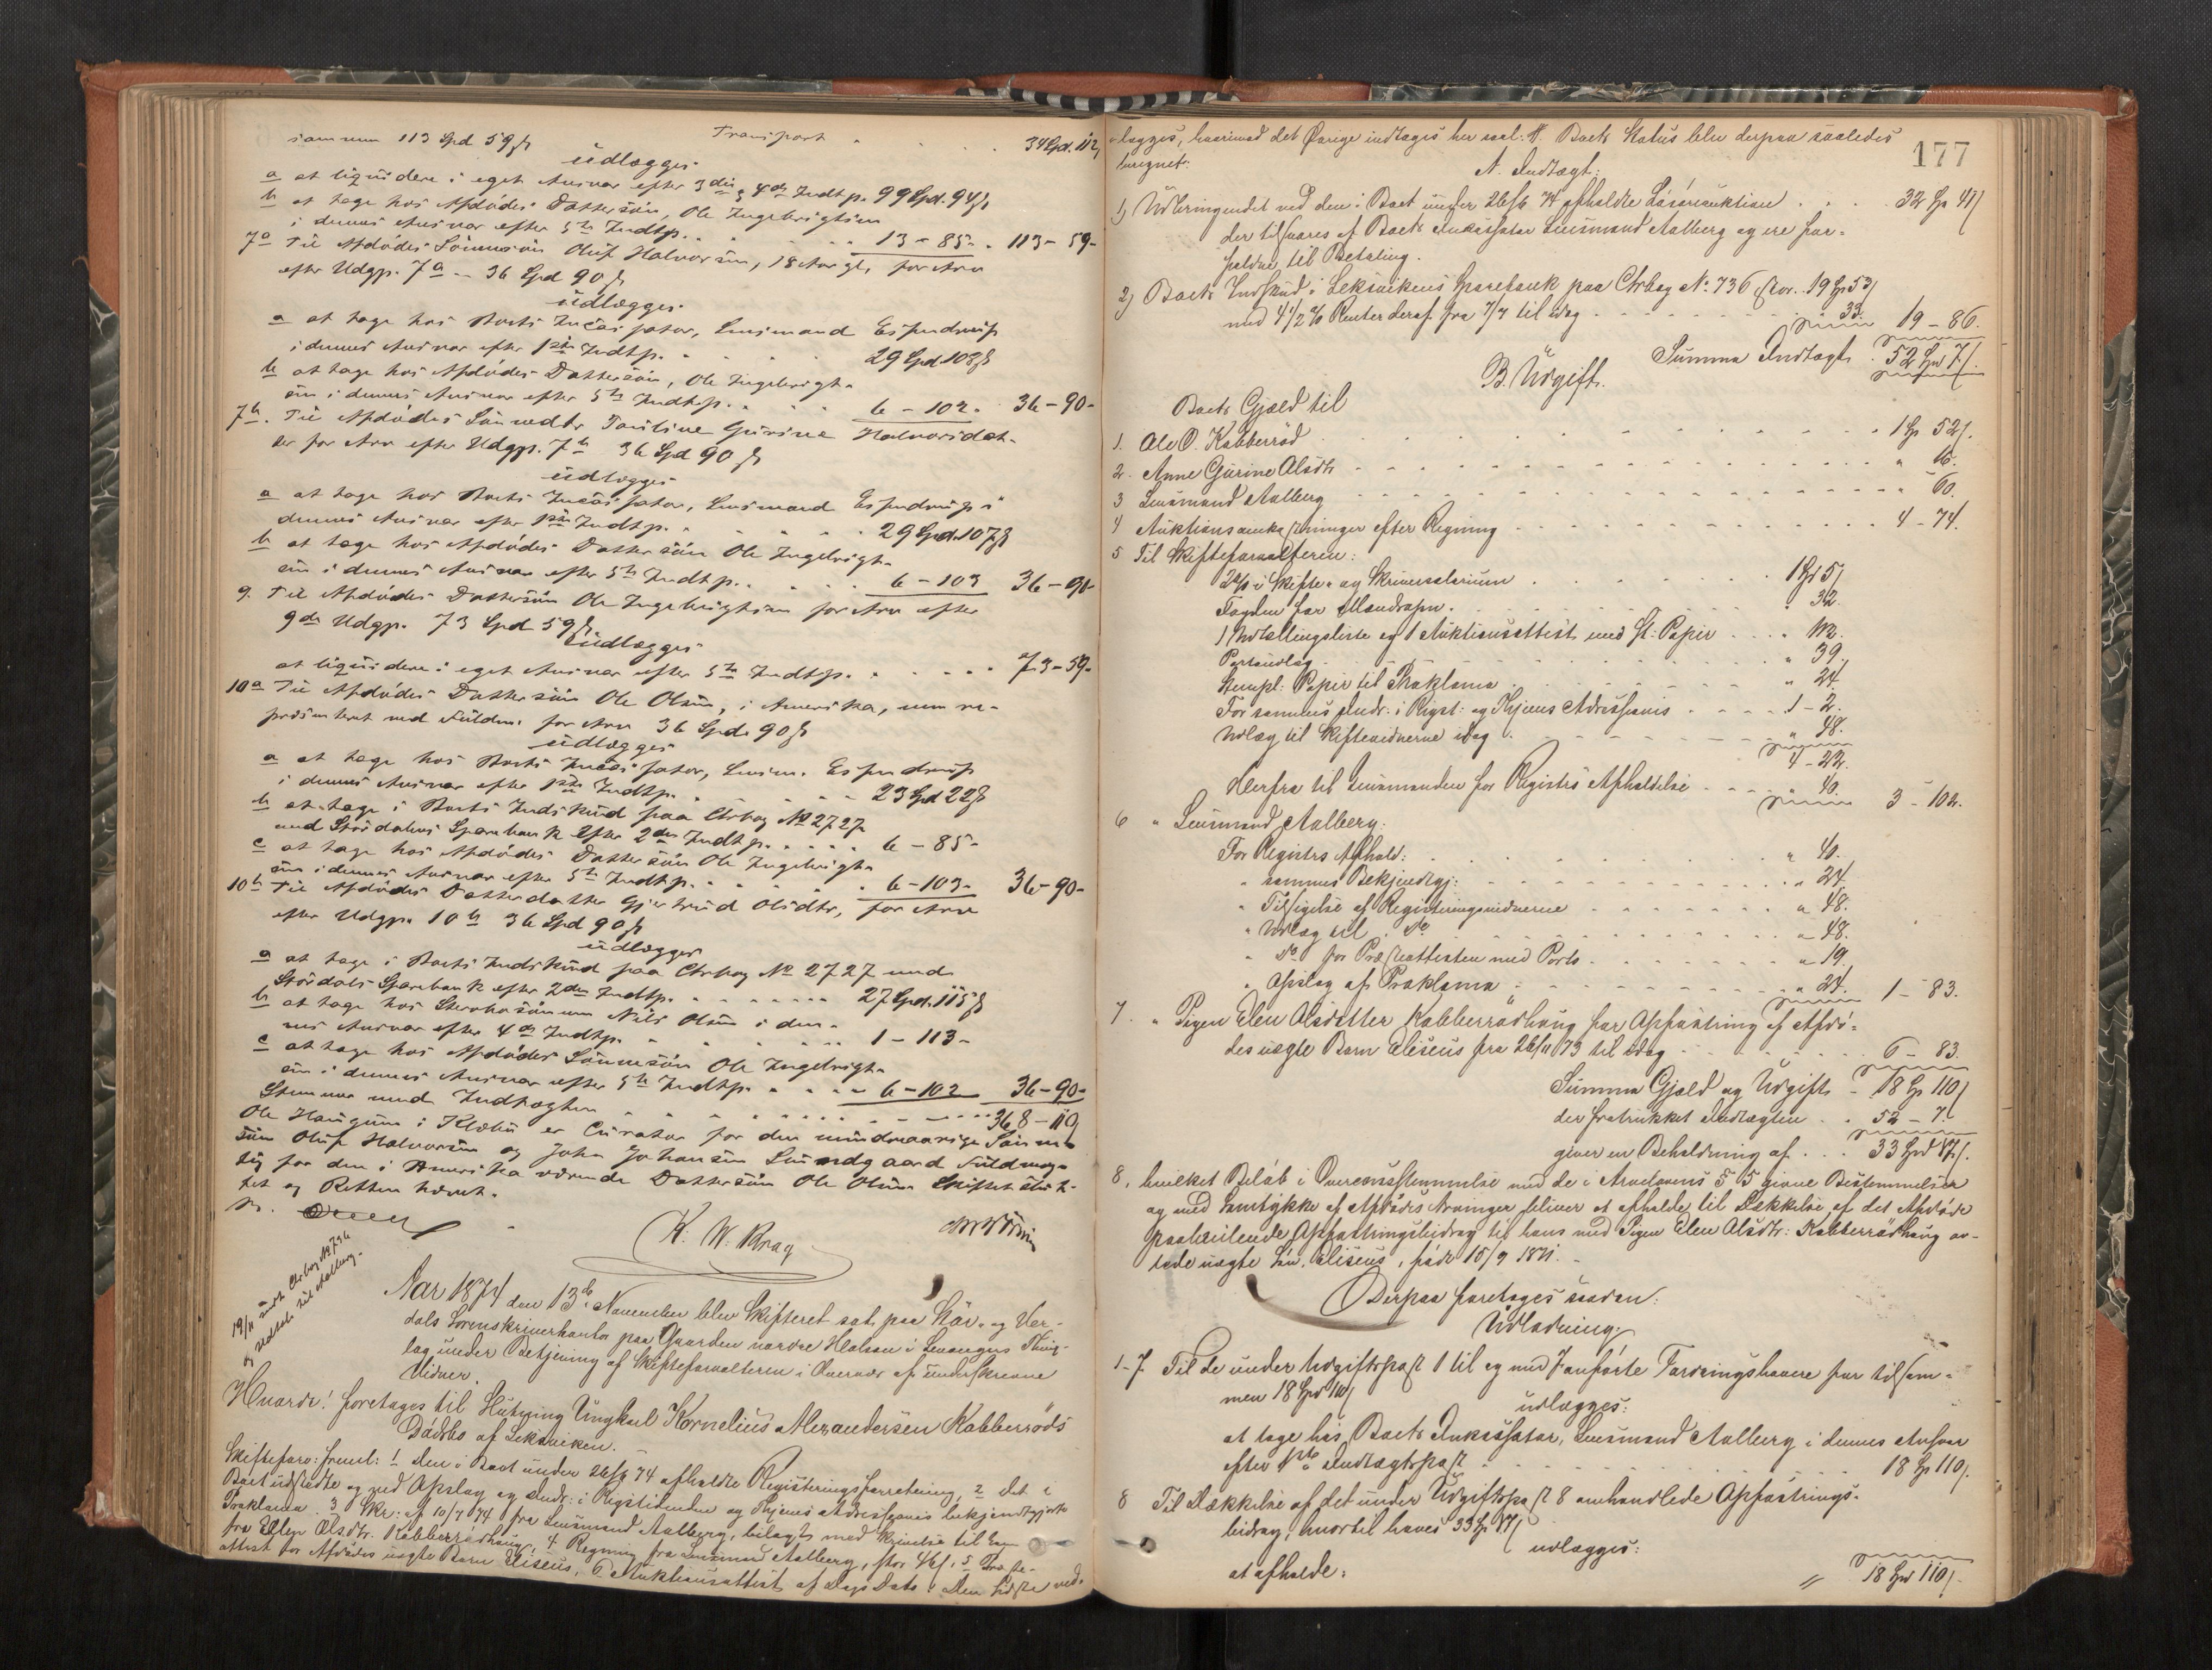 Transport 34 Spd. 112
sammen 113 Spd 59 ß
udlægges
a at liqvidere i eget Ansvar efter 3die & 4de Indtp. 99 Spd. 94 ß
b at tage hos Afdødes Dattersøn, Ole Ingebrigtsen
i dennes Ansvar efter 5te Indtp. 13 - 85 - 113 - 59 -
7a Til Afdødes Sønnesøn Oluf Halvorsen, 18 Aar gl, for Arv
efter Udgp. 7a - 36 Spd 90 ß
udlægges
a at tage hos Boets Incassator, Lensmand
i dennes Ansvar efter 1ste Indtp. 29 Spd. 108 ß
b at tage hos Afdødes Dattersøn, Ole Ingebrigt-
sen i dennes Ansvar efter 5te Indtp. 6 - 102 - 36 - 90 -
7b. Til Afdødes Sønnedtr Pauline Gurine Halvorsdat-
ter for Arv efter Udgp. 7b 36 Spd 90 ß
udlægges
a at tage hos Boets Incassator, Lensmand i
dennes Ansvar efter 1ste Indtp. 29 Spd. 107 ß
b at tage hos Afdødes Dattersøn Ole Ingebrigt-
sen i dennes Ansvar efter 5te Indtp. 6 - 103 36 - 90 -
9. Til Afdødes Dattersøn Ole Ingebrigtsen for Arv efter
9de Udgp. 73 Spd 59 ß
udlægges
at liqvidere i eget Ansvar efter 5te Indtp. 73 - 59 -
10a Til Afdødes Dattersøn Ole Olsen, i Amerika, nu re-
præsenteret ved Fuldm. for Arv 36 Spd. 90 ß
udlægges
a at tage hos Boets Incassator, Lensm.
i dennes Ansvar efter 1ste Indtp. 23 Spd 22 ß
b at tage i Boets Indskud paa Ctrbog No 2727
med Stördalens Sparebank efter 2den Indtp. 6 - 85 -
c at tage hos Afdødes Dattersøn Ole Ingebrigt-
sen i dennes Ansvar efter 5te Indtp. 6 - 103 - 36 - 90 -
10b Til Afdødes Datterdatter Gjertrud Olsdtr, for Arv
efter Udgp. 10b 36 Spd 90 ß
udlægges
a at tage i Boets Indskud paa Ctrbog No 2727 med
Stördals Sparebank efter 2den Indtp. 27 Spd. 115 ß
b at tage hos Nils Olsen i den-
nes Ansvar efter 4de Indtp. 1 - 113 -
c at tage hos Afdødes Sønnesøn Ole Ingebrigt-
sen i dennes Ansvar efter 5te Indtp. 6 - 102 36 - 90 -
Stemmer med Indtægten 368 - 110
Ole Haugum i Klæbu er Curator for den mindreaarige Sønne-
søn Oluf Halvorsen og John Johansen Lundgaard Fuldmæg-
tig for den i Amerika værende Dattersøn Ole Olsen. Skiftet slut-
tet og Retten hævet.
K. W. Krag
19/11 Ctrbog No 736
Aalberg.
Aar 1874 den 13de November blev Skifteret sat paa Stör- og Ver-
dals Sorenskriverkontor paa Gaarden nordre Halsan i Levangers Thing-
lag under Betjening af Skifteforvalteren i Overvær af underskrevne
Vidner.
Hvorda! foretages til Slutning Ungkarl Kornelius Alexandersen Kabberröds
Dödsbo af Leksviken.
Skifteforv: freml: 1 den i Boet under 26/6 74 afholdte Registreringsforretning, 2 det i
Boet udstædte og ved Opslag og Indr: i Rigstidenden og Thjems Adresseavis bekjendtgjorte
Proklama 3 Skr: af 10/7 74 fra Lensmand Aalberg, bilagt med Skrivelse til ham
fra Elen Olsdtr. Kabberrödhaug, 4 Regning fra Lensmand Aalberg, stor 46 ß, 5 Præste-
attest for Afdødes uægte Barn Eliseus, 6 Auktionsattest af Dags Dato. Den sidste ved-
177
lægges, hvorimod det Øvrige indtages her saal: #. Boets Status blev derpaa saaledes
beregnet:
A. Indtægt:
1) Udbringendet ved den i Boet under 26/6 74 afholdte Løsøreauktion 32 Sp 41 ß
der tilsvares af Boets Inkassator Lensmand Aalberg og ere for-
faldne til Betaling.
2) Boets Indskud i Leksvikens Sparebank paa Ctrbog No. 736, stor. 19 Sp 53 ß
med 4 1/2 % Renter deraf fra 7/7 til idag 33. 19 - 86.
Summa Indtægt. 52 Spd 7 ß.
B. Udgift.
Boets Gjæld til
1. Ole O. Kabberröd 1 Sp 52 ß.
2. Anne Gurine Olsdtr " 16.
3 Lensmand Aalberg " 60.
4 Auktionsomkostninger efter Regning 4 - 74.
5 Til Skifteforvalteren:
2 % i Skifte- og Skriversalarium 1 Spd 5 ß
Fogden for " 32.
1 Udtællingsliste og 1 Auktionsattest med St: Papir " 112.
Portoudlæg " 39.
Stempl: Papir til Proklama " 24.
For sammes Indr: i Rigst: og Thjems Adresseavis 1 - 2.
Udlæg til Skiftevidnerne idag " 48.
4 - 22.
Herfra til Lensmanden for Registrs Afholdelse " 40. 3 - 102.
6 " Lensmand Aalberg:
For Registrs Afhold: " 40.
" sammes Bekjendtgj: " 24.
" Tilsigelse af Registreringsvidnerne " 48.
" Udlæg til Do " 48.
" Do for Præsteattesten med Porto " 19.
" Opslag af Proklama " 24. 1 - 83.
7. " Pigen Elen Olsdatter Kabberrödhaug for Opfostring af Afdö-
des uægte Barn Eliseus fra 26/11 73 til idag 6 - 83.
Summa Gjæld og Udgift 18 Sp 110 ß
der fratrukket Indtægten 52 - 7.
giver en Beholdning af 33 Spd 17 ß.
8, hvilket Beløb i Overensstemmelse med de i Arvelovens § 5 givne Bestemmelser
og med Samtykke af Afdødes Arvinger bliver at afholde til Dækkelse af det Afdøde
paahvilende Opfostringsbidrag til hans med Pigen Elen Olsdtr: Kabberrödhaug av-
lede uægte Søn Eliseus, född 15/9 1871.
Derpaa foretages saadan:
Udlodning:
1-7. Til de under Udgiftspost 1 til og med 7 anførte Fordringshavere for tilsam-
men 18 Spd 110 ß
udlægges:
at tage hos Boets Inkassator, Lensmand Aalberg i dennes Ansvar
efter 1ste Indtægtspost 18 Sp 110 ß.
8 Til Dækkelse af det under Udgiftspost 8 omhandlede Opfostrings-
bidrag, hvortil haves 33 Sp 17 ß
udlægges:
at afholde:
" 18 Spd 110 ß.